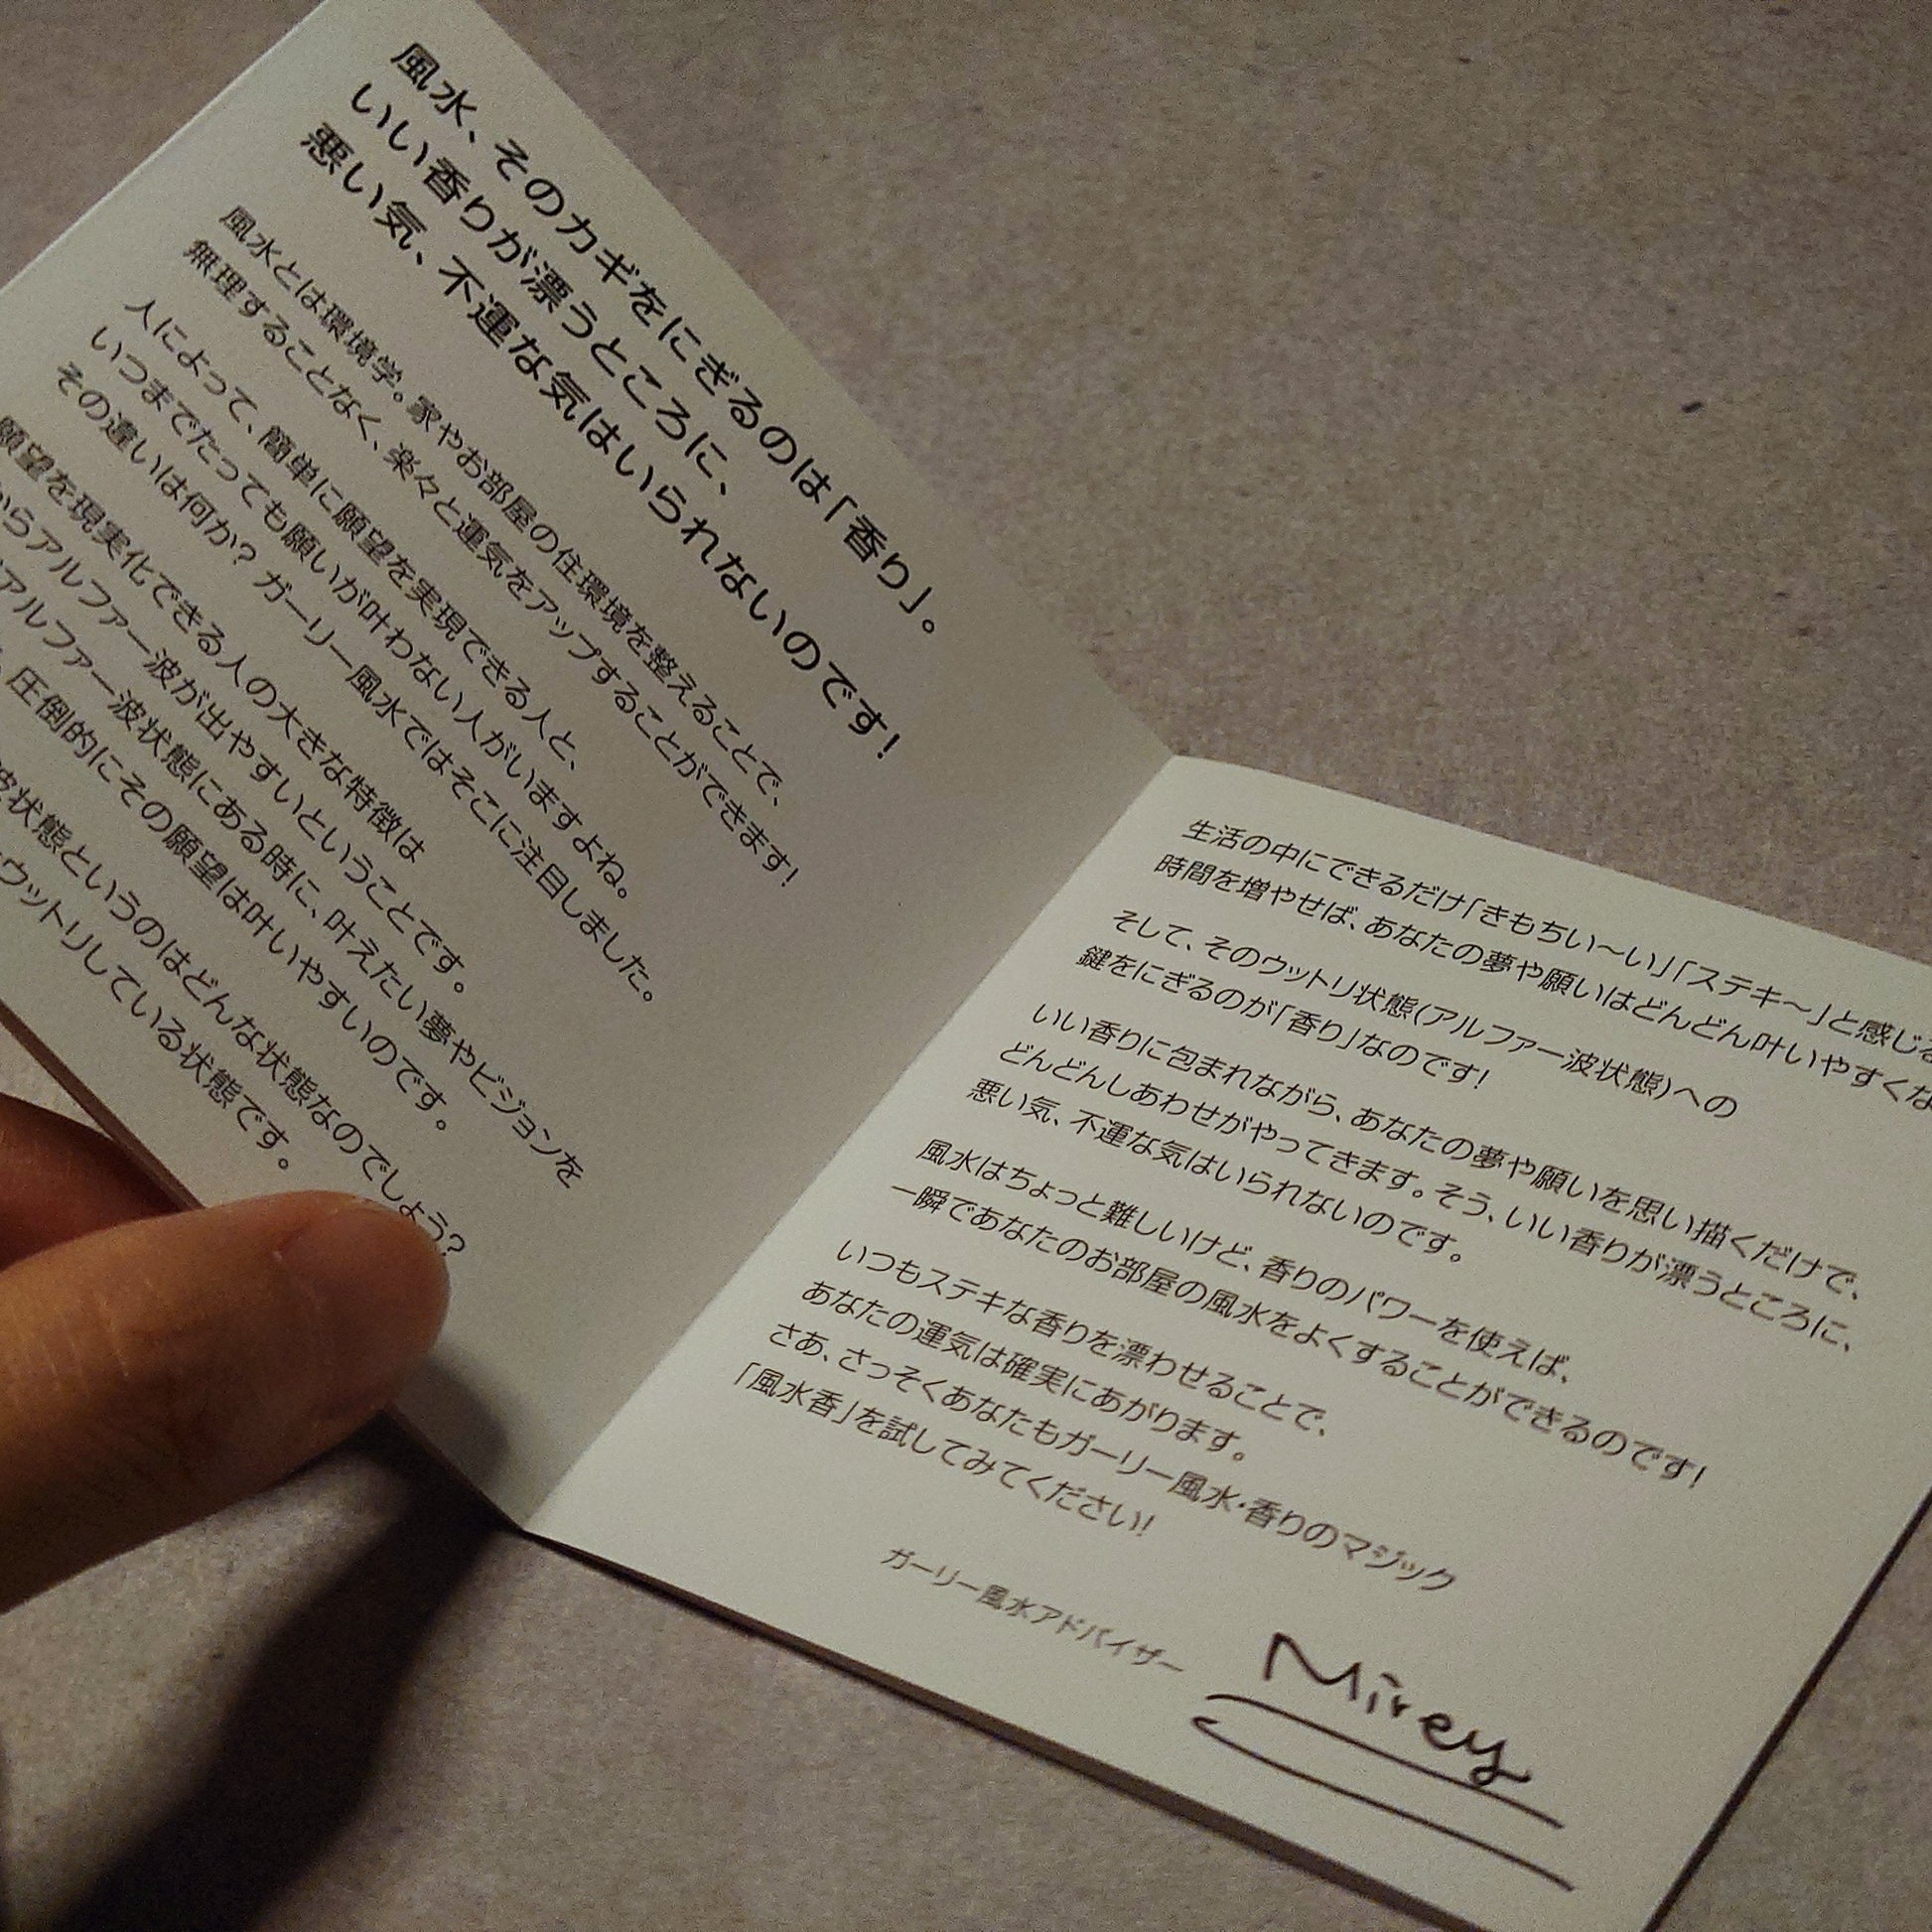 風水、そのカギをにぎるのは「香り」。
いい香りが漂うところに、
悪い気、不運な気はいられないのです!
風水とは環境学。家やお部屋の住環境を整えることで、
無理することなく、楽々と運気をアップすることができます!
人によって、簡単に願望を実現できる人と、
いつまでたっても願いが叶わない人がいますよね。
その違いは何か? ガーリー風水ではそこに注目しました。
願望を現実化できる人の大きな特徴は
からアルファー波が出やすいということです。
アルファー波状態にある時に、叶えたい夢やビジョンを
圧倒的にその願望は叶いやすいのです。
波状態というのはどんな状態なのでしょう?
ウットリしている状態です。
生活の中にできるだけ「きもちい〜い」「ステキ〜」と感じる
時間を増やせば、あなたの夢や願いはどんどん叶いやすくな
そして、そのウットリ状態(アルファー波状態)への
鍵をにぎるのが「香り」なのです!
いい香りに包まれながら、あなたの夢や願いを思い描くだけで、
どんどんしあわせがやってきます。そう、いい香りが漂うところに、
悪い気、不運な気はいられないのです。
風水はちょっと難しいけど、香りのパワーを使えば、
一瞬であなたのお部屋の風水をよくすることができるのです!
いつもステキな香りを漂わせることで、
あなたの運気は確実にあがります。
さあ、さっそくあなたもガーリー風水・香りのマジック
「風水香」を試してみてください!
ガーリー風水アドバイザー
Mirey